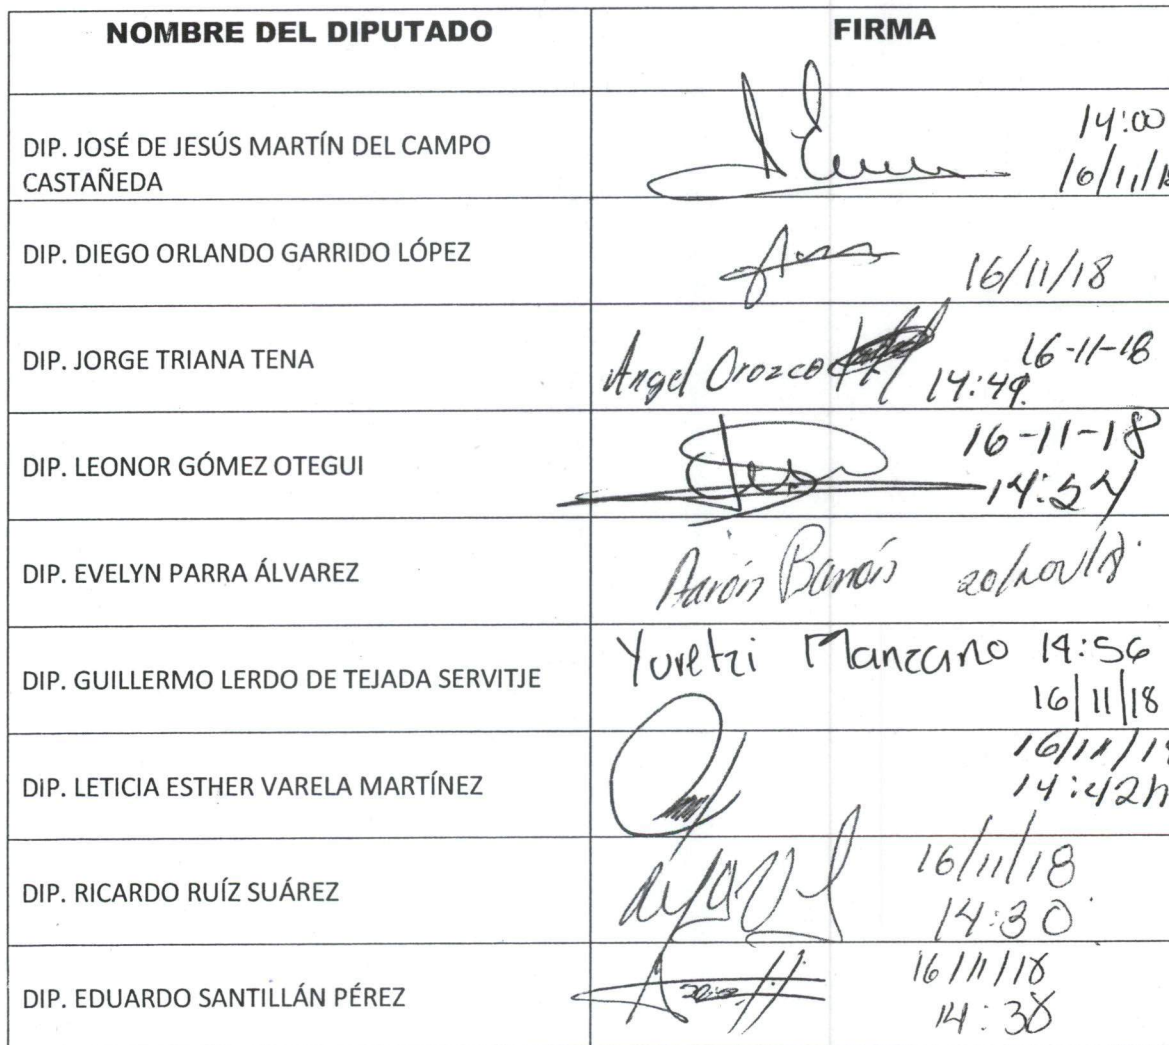 NOMBRE DEL DIPUTADO
FIRMA
DIP. JOSÉ DE JESÚS MARTÍN DEL CAMPO
CASTAÑEDA
14:00
16/11/18
DIP. DIEGO ORLANDO GARRIDO LÓPEZ
16/11/18
DIP. JORGE TRIANA TENA
Angel Orozco
16-11-18
14:49
DIP. LEONOR GÓMEZ OTEGUI
16-11-18
DIP. EVELYN PARRA ÁLVAREZ
Aarón
DIP. GUILLERMO LERDO DE TEJADA SERVITJE
Yuretzi Manzano 14:56
16/11/18
DIP. LETICIA ESTHER VARELA MARTÍNEZ
14:42h
DIP. RICARDO RUÍZ SUÁREZ
16/11/18
14:30
DIP. EDUARDO SANTILLÁN PÉREZ
16/11/18
14:38